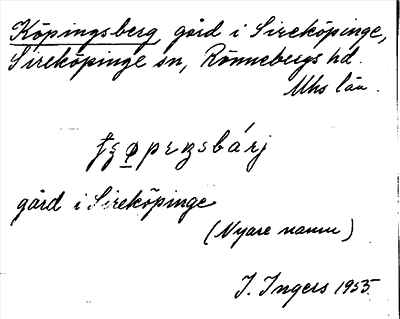 Köpingsberg, gård i Sireköpinge,
Sireköpinge sn, Rönnebergs hd.
Mhs län.
gård i Sireköpinge
(Nyare namn)
I. Ingers 1955.